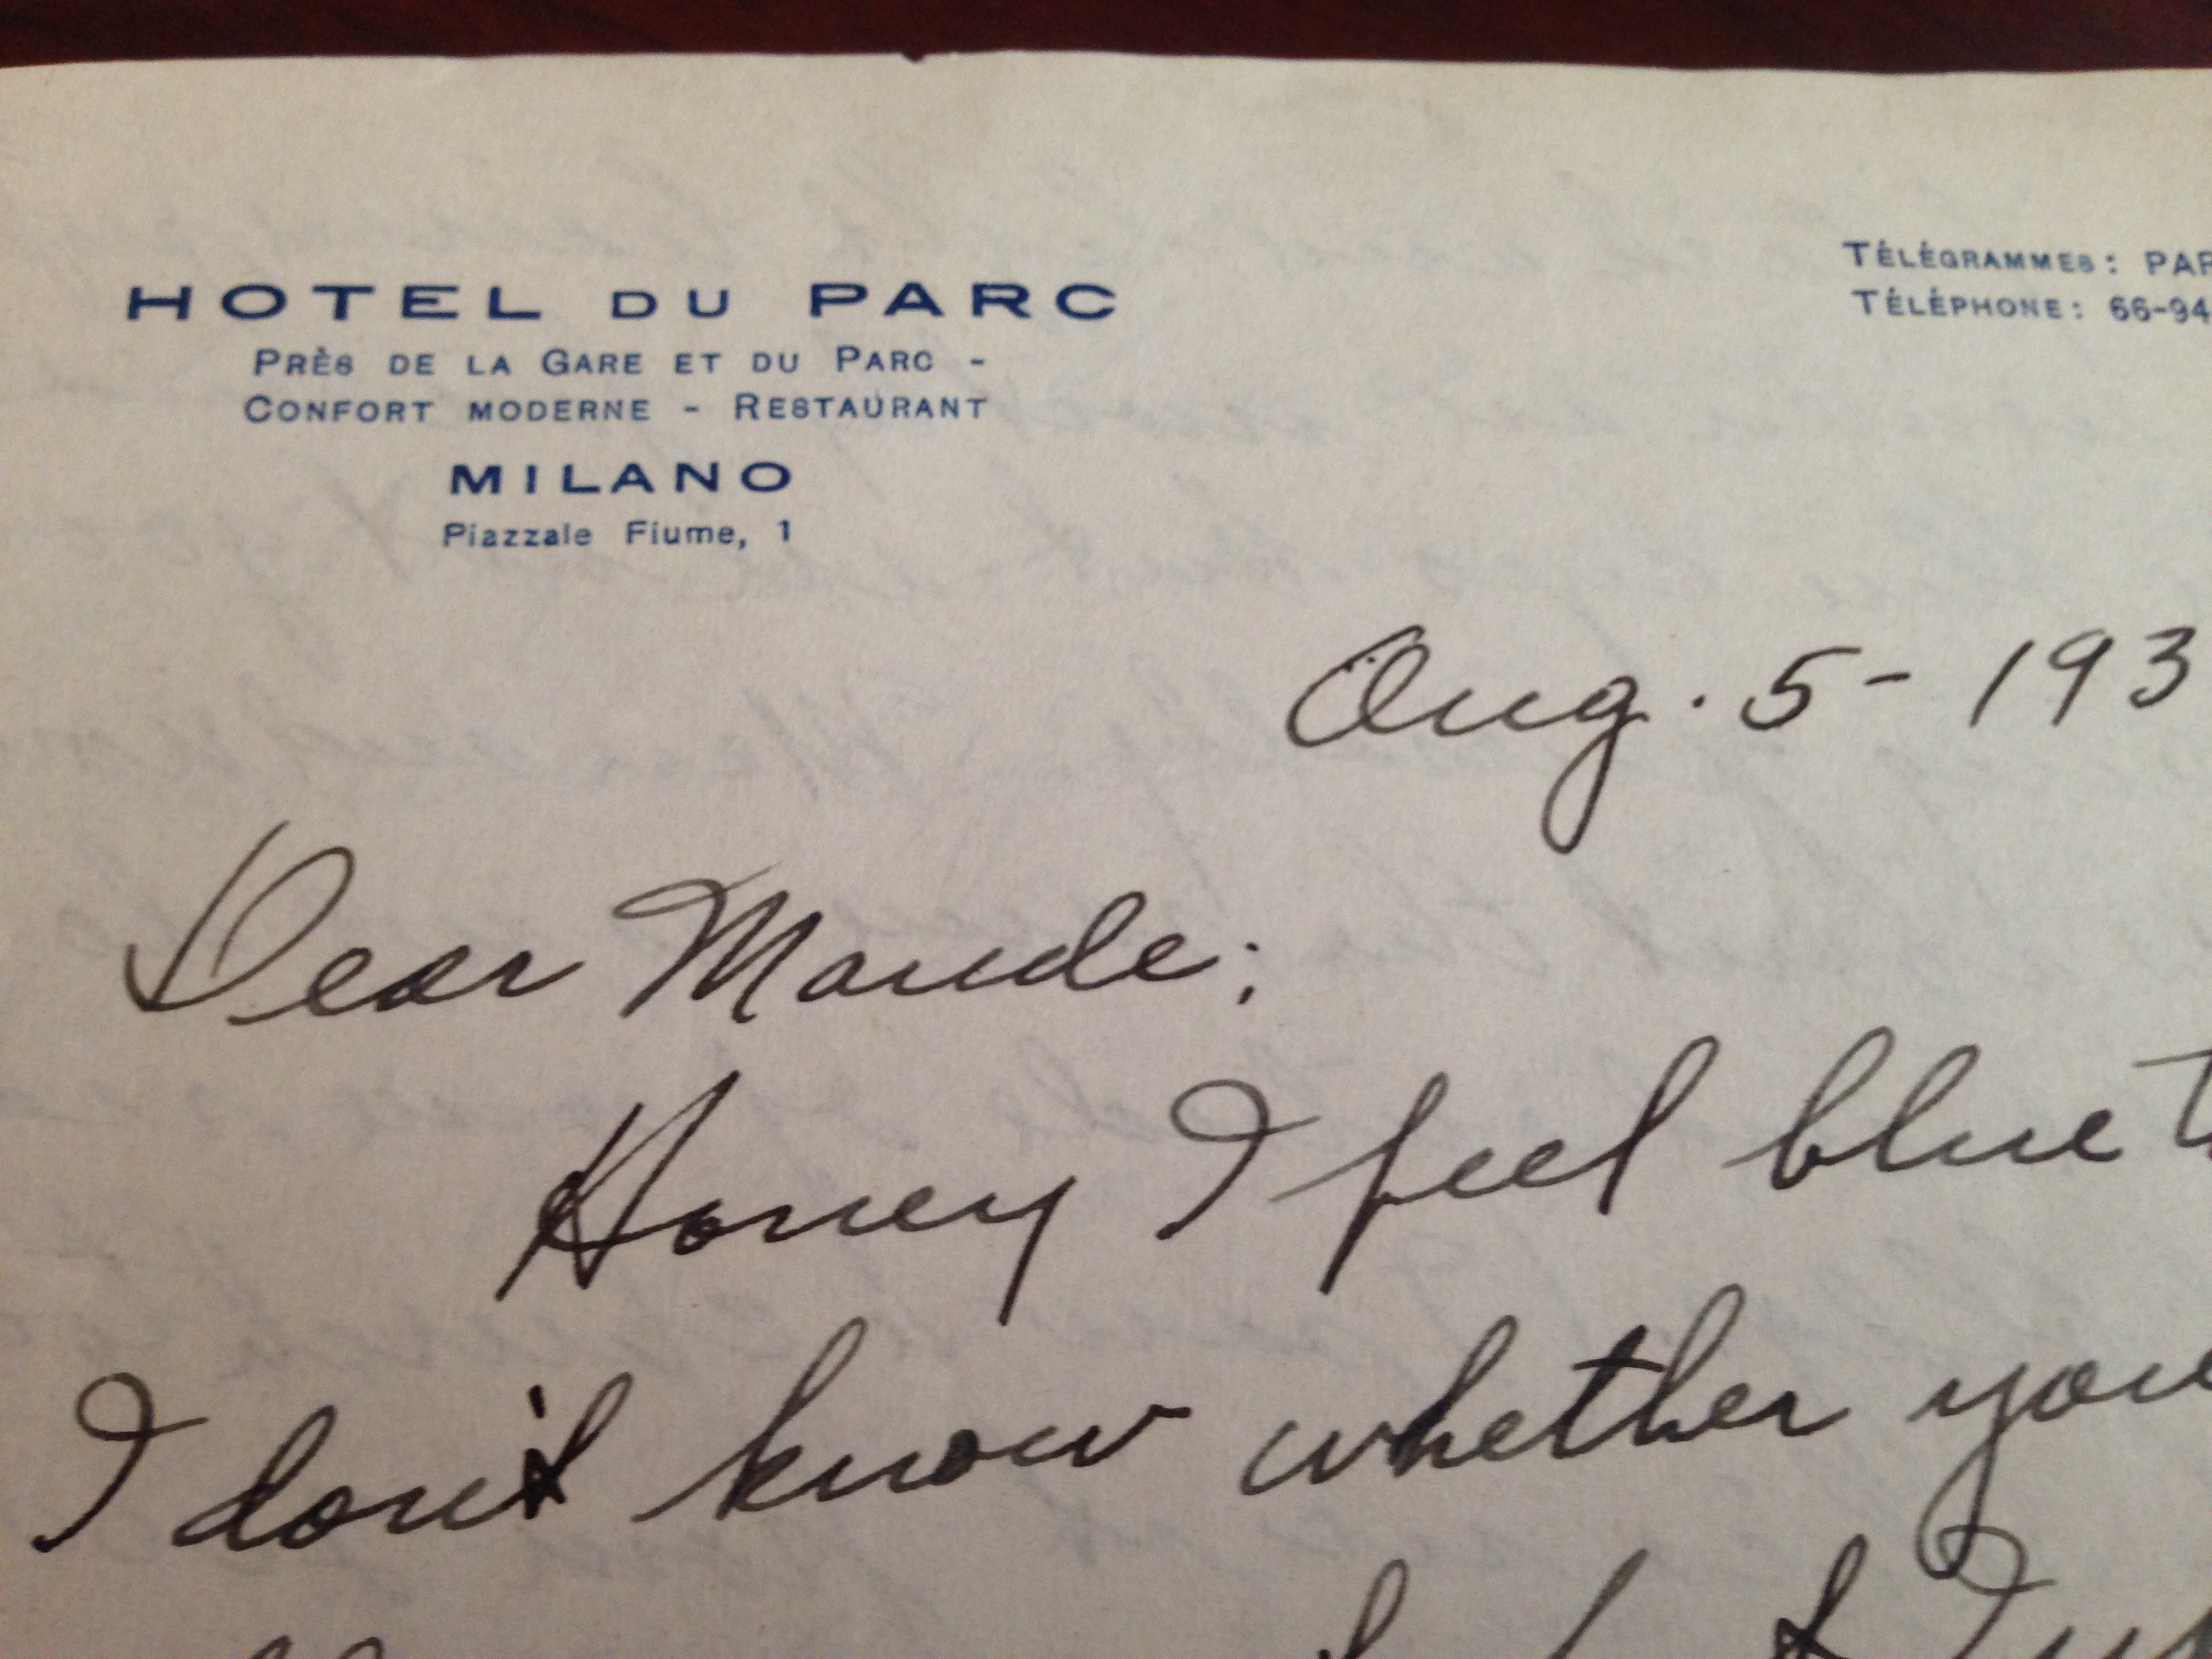 HOTEL DU PARC
PRÈS DE LA GARE ET DU PARC -
CONFORT MODERNE - RESTAURANT
MILANO
Piazzale Fiume, 1
TÉLÉGRAMMES: PAR
TÉLÉPHONE: 66-94
Aug. 5- 193
Dear Maude:
Honey I feel blue
I don't know whether you